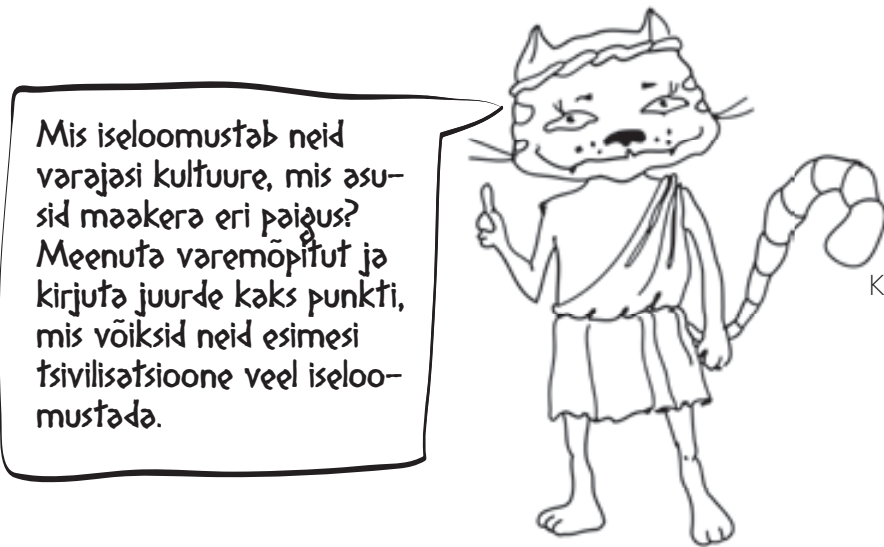 Mis iseloomustab neid
varajasi kultuure, mis asu-
sid maakera eri paigus?
Meenuta varemõpitut ja
kirjuta juurde kaks punkti,
mis võiksid neid esimesi
tsivilisatsioone veel iseloo-
mustada.
K